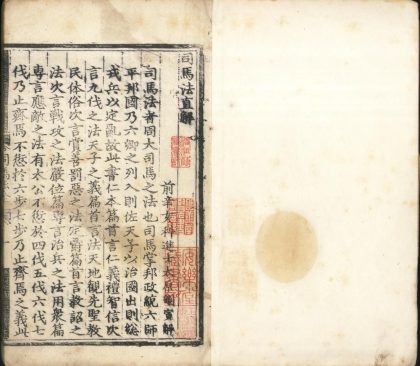 司馬法直解
前辛亥科進士太原劉寅解
司馬法者周大司馬之法也司馬掌邦政統六師
平邦國乃六卿之列入則佐天子以治國出則總
戎兵以定亂故此書仁本篇首言仁義禮智信次
言九伐之法天子之義篇首言法天地觀先聖教
民体俗次言賞善罰惡之法定爵篇首言教詔之
法次言戰攻之法嚴位篇專言治兵之法用衆篇
專言應敵之法有太公不愆於四伐五伐六伐七
伐乃止齊焉不愆於六步七步乃止齊焉之義此